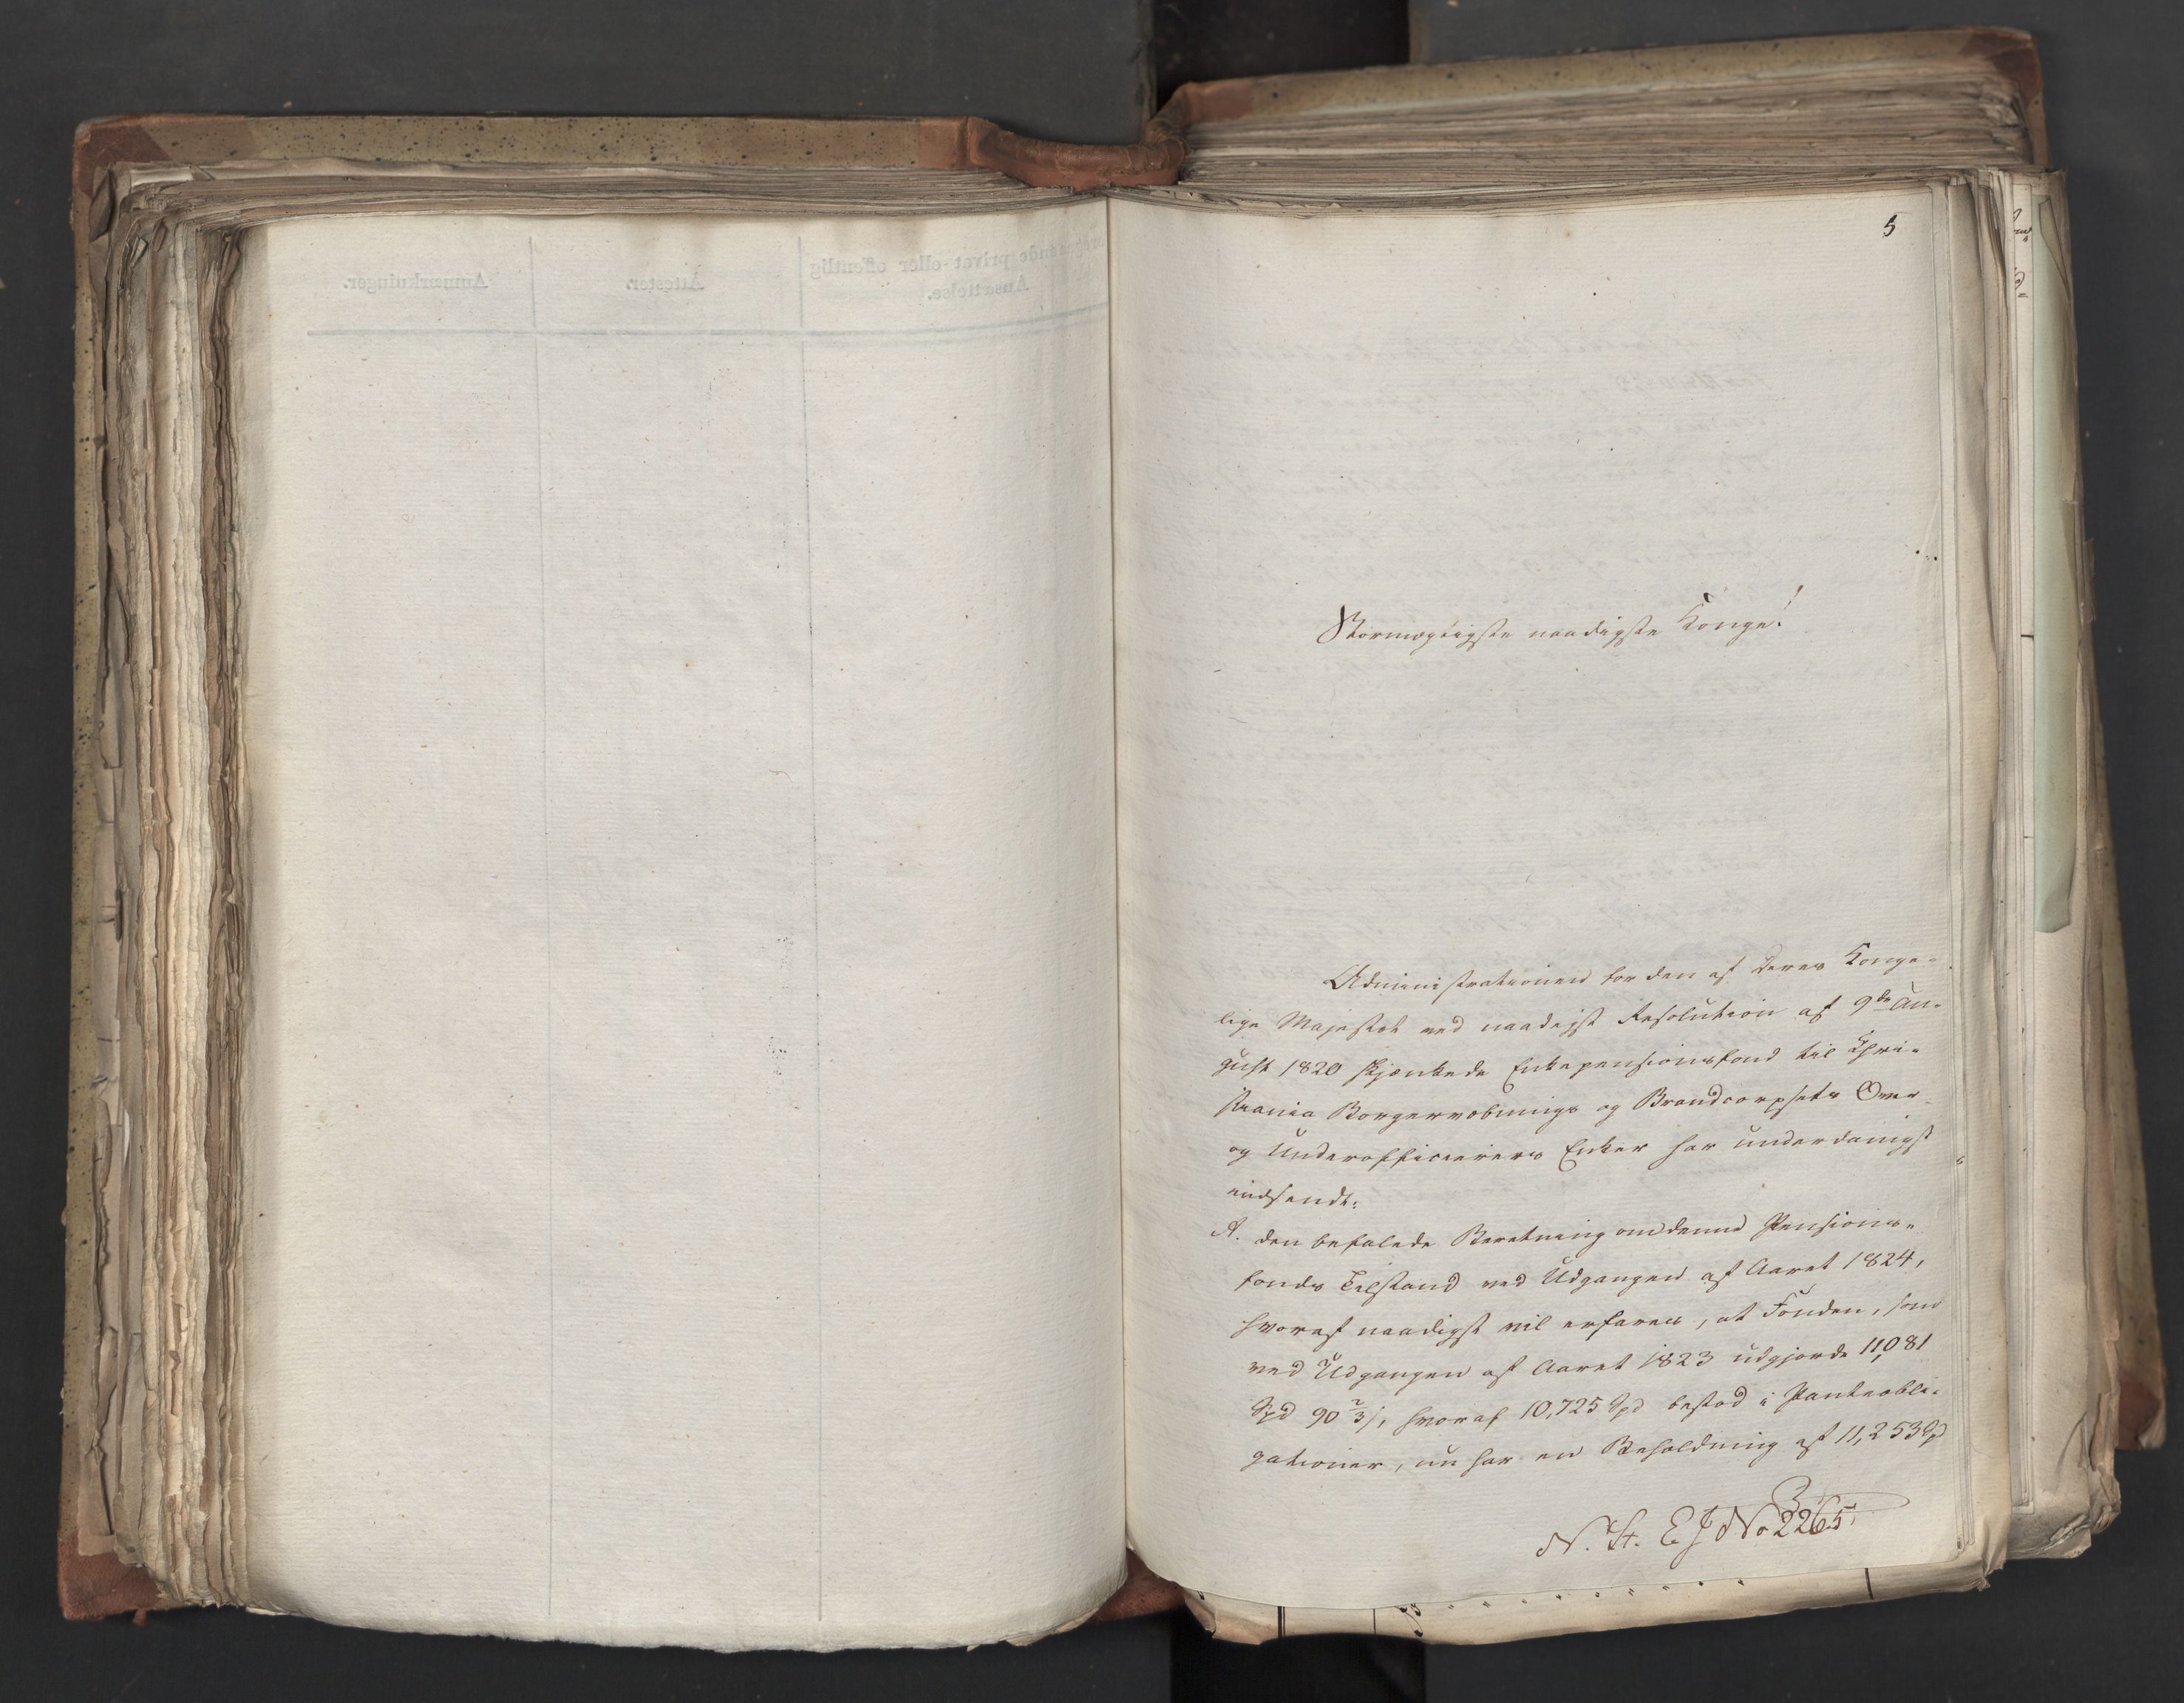 5
Stormægtigste naadigste Konge!
Administrationen for den af Deres Konge-
lige Majestæt ved naadigst Resolution af 9de Au-
gust 1820 skjænkede Enkepensionsfond til Chri-
stiania Borgervæbnings og Brandcorpsets Over
og Underofficierers Enker har underdanigst
indsendt:
A. den befalede Beretning om denne Pensions-
fonds Tilstand ved Udgangen af Aaret 1824,
hvoraf naadigst vil erfares, at Fonden, som
ved Udgangen af Aaret 1823 udgjorde 11,081
Spd 90 2/3 s, hvoraf 10,725 Spd bestod i Panteobli-
gationer, nu har en Beholdning af 11,253 Spd
N. St. E J No 2265